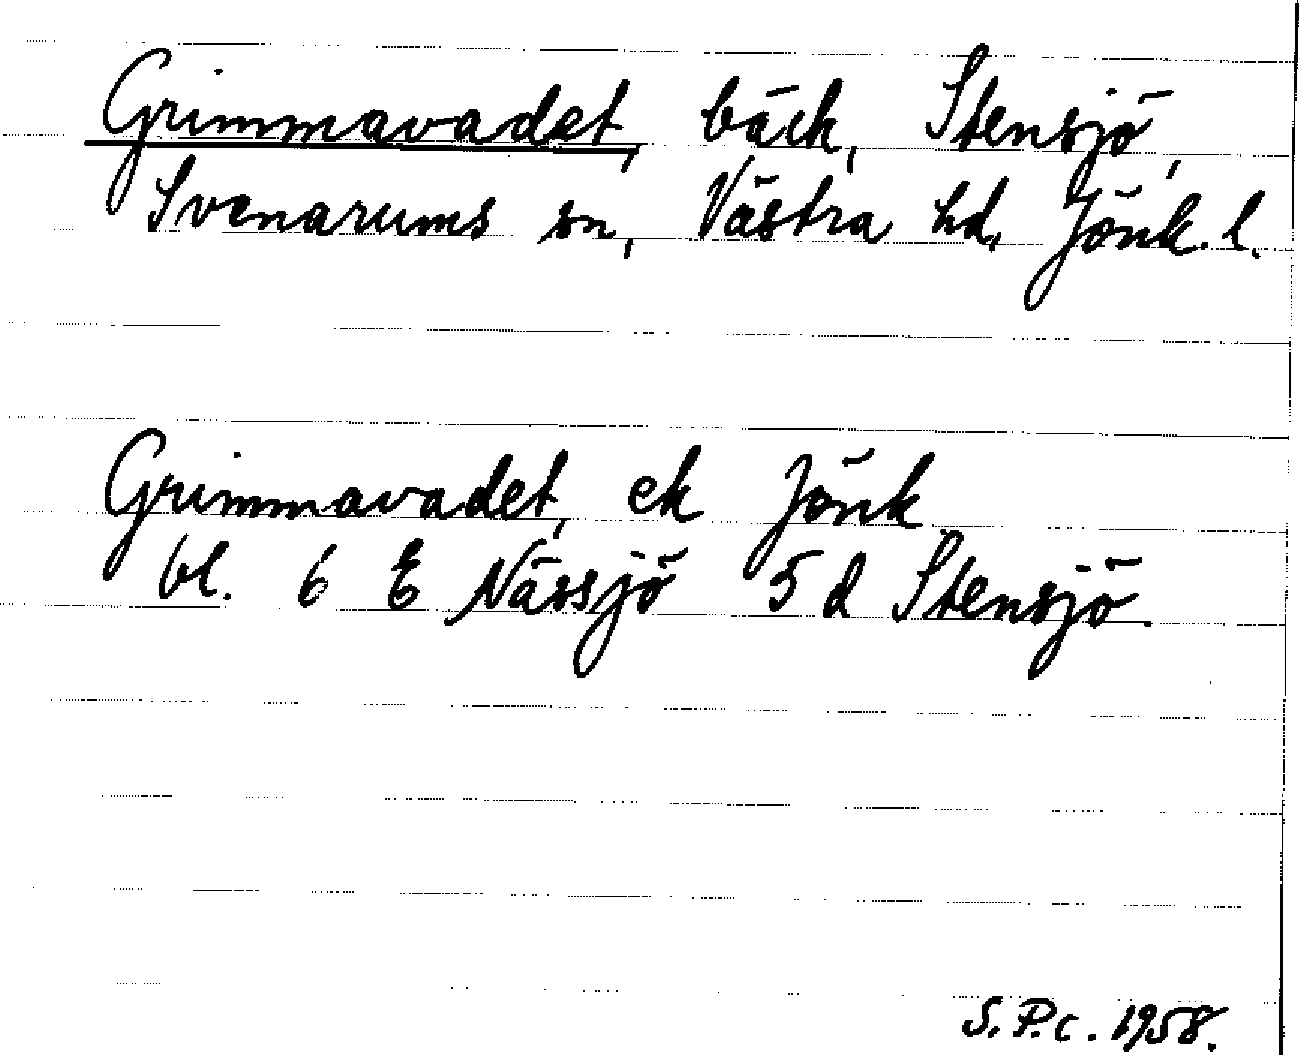 Grimmavadet, bäck, Stensjö,
Svenarums sn, Västra hd, Jönk. l.
Grimmavadet, ek Jönk
bl. 6 E Nässjö 5 d Stensjö.
S. P. c. 1958.